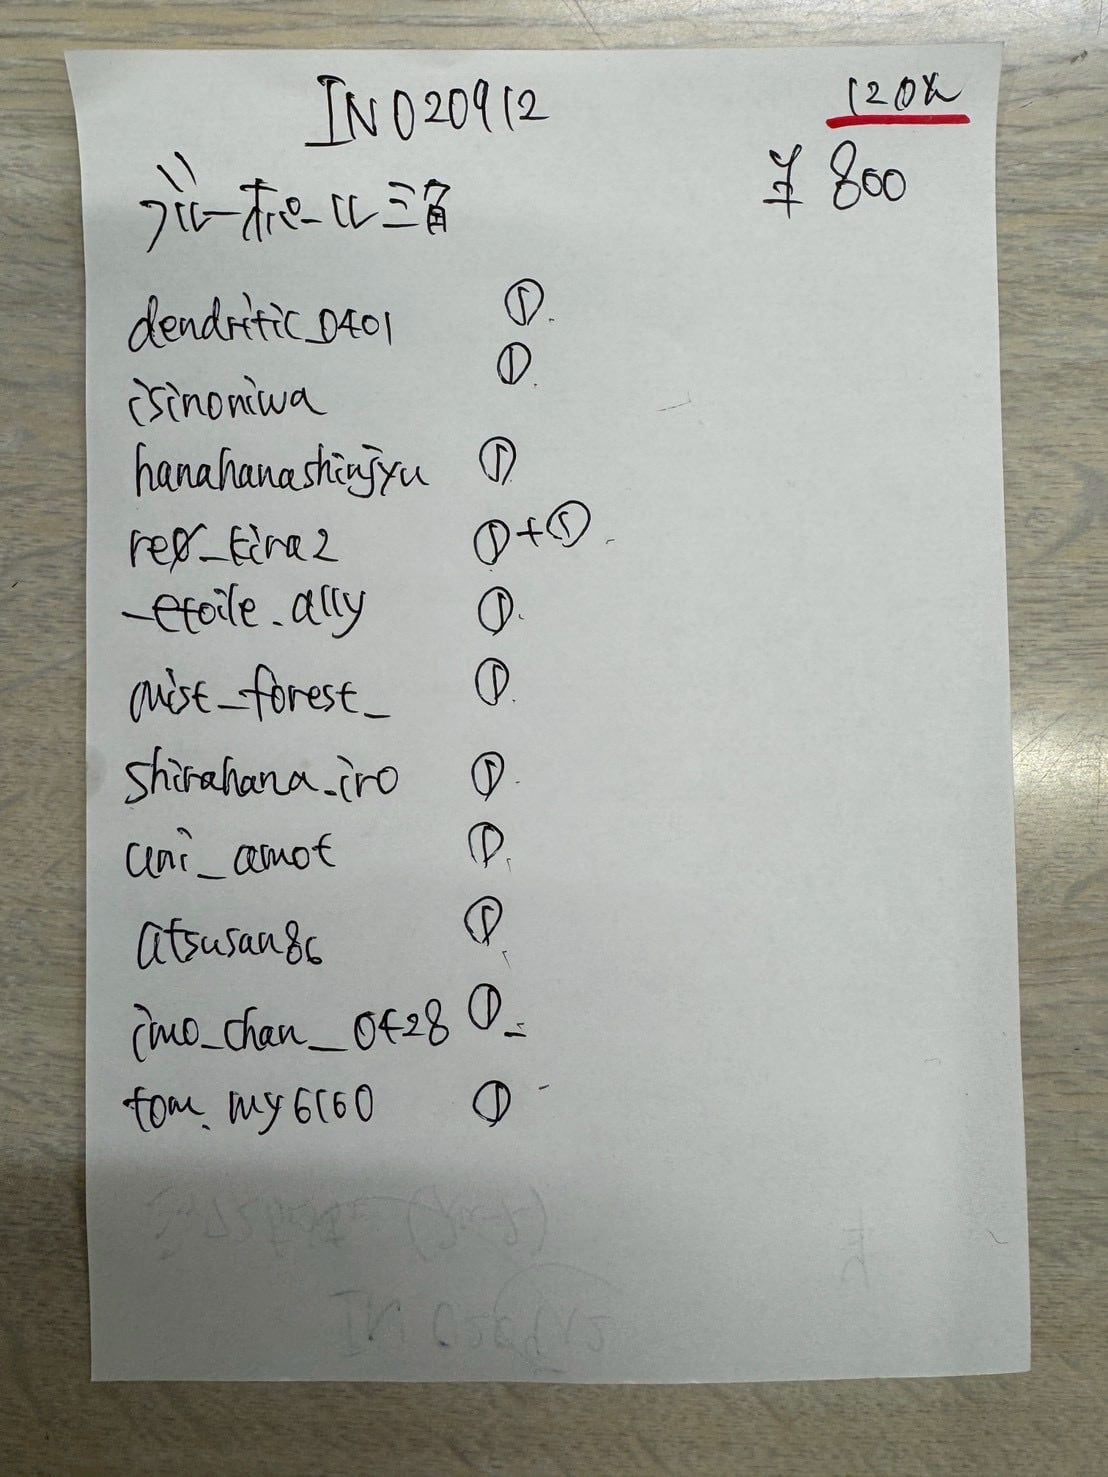 IN020912
120pc
¥800
ブルーオパール三角
dendritic_0401 ①
isinoniwa ①
hanahanashinjyu ①
re_tira2 ①+①
_etoile.ally ①
mist_forest_ ①
shirahana.iro ①
uni_amot ①
atsusan86 ①
imo_chan__0428 ①
tom.my6160 ①